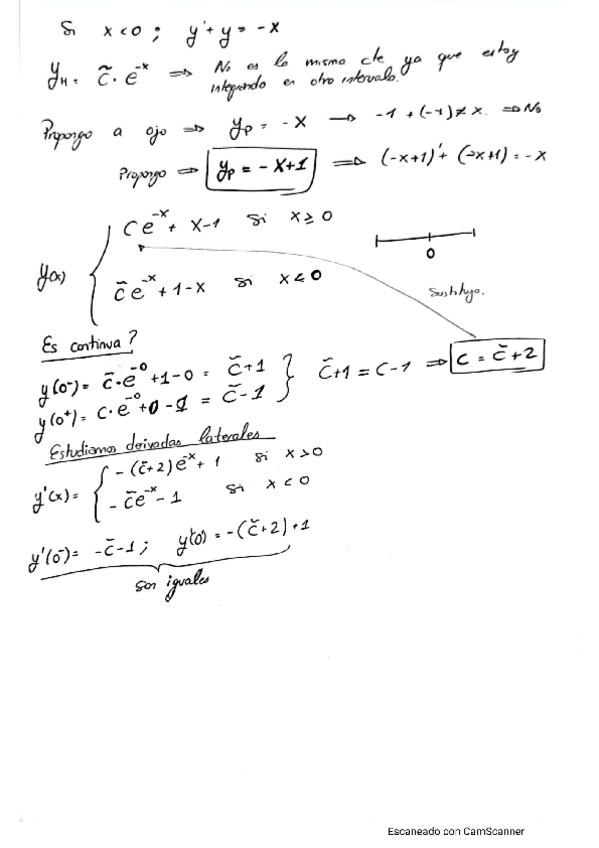 Si x<0 ; y'+y = -x
y_H = c̃·e^-x ⇒ No es la misma cte ya que estoy
integrando en otro intervalo.
Propongo a ojo ⇒ y_p = -x → -1+(-x)≠x. ⇒ No
Propongo ⇒ y_p = -x+1 ⇒ (-x+1)'+(-x+1) = -x
y(x) { ce^-x + x-1 si x≥0
c̃e^-x + 1-x si x<0
0
Sustituyo.
Es continua?
y(0^-) = c̃·e^-0 + 1-0 = c̃+1 } c̃+1 = c-1 ⇒ c = c̃+2
y(0^+) = c·e^-0 + 0-1 = c̃-1
Estudiamos derivadas laterales
y'(x) = { -(c̃+2)e^-x + 1 si x>0
-c̃e^-x - 1 si x<0
y'(0^-) = -c̃-1 ; y'(0) = -(c̃+2)+1
son iguales
Escaneado con CamScanner